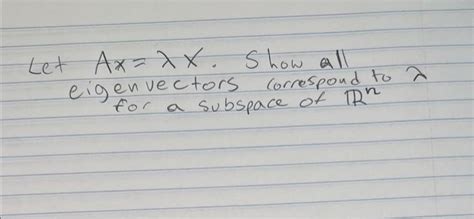 Let Ax = λx. Show all
eigenvectors correspond to λ
for a subspace of ℝⁿ